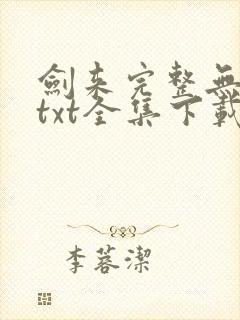 劍来完整無
txt全集下載
李蓉潔